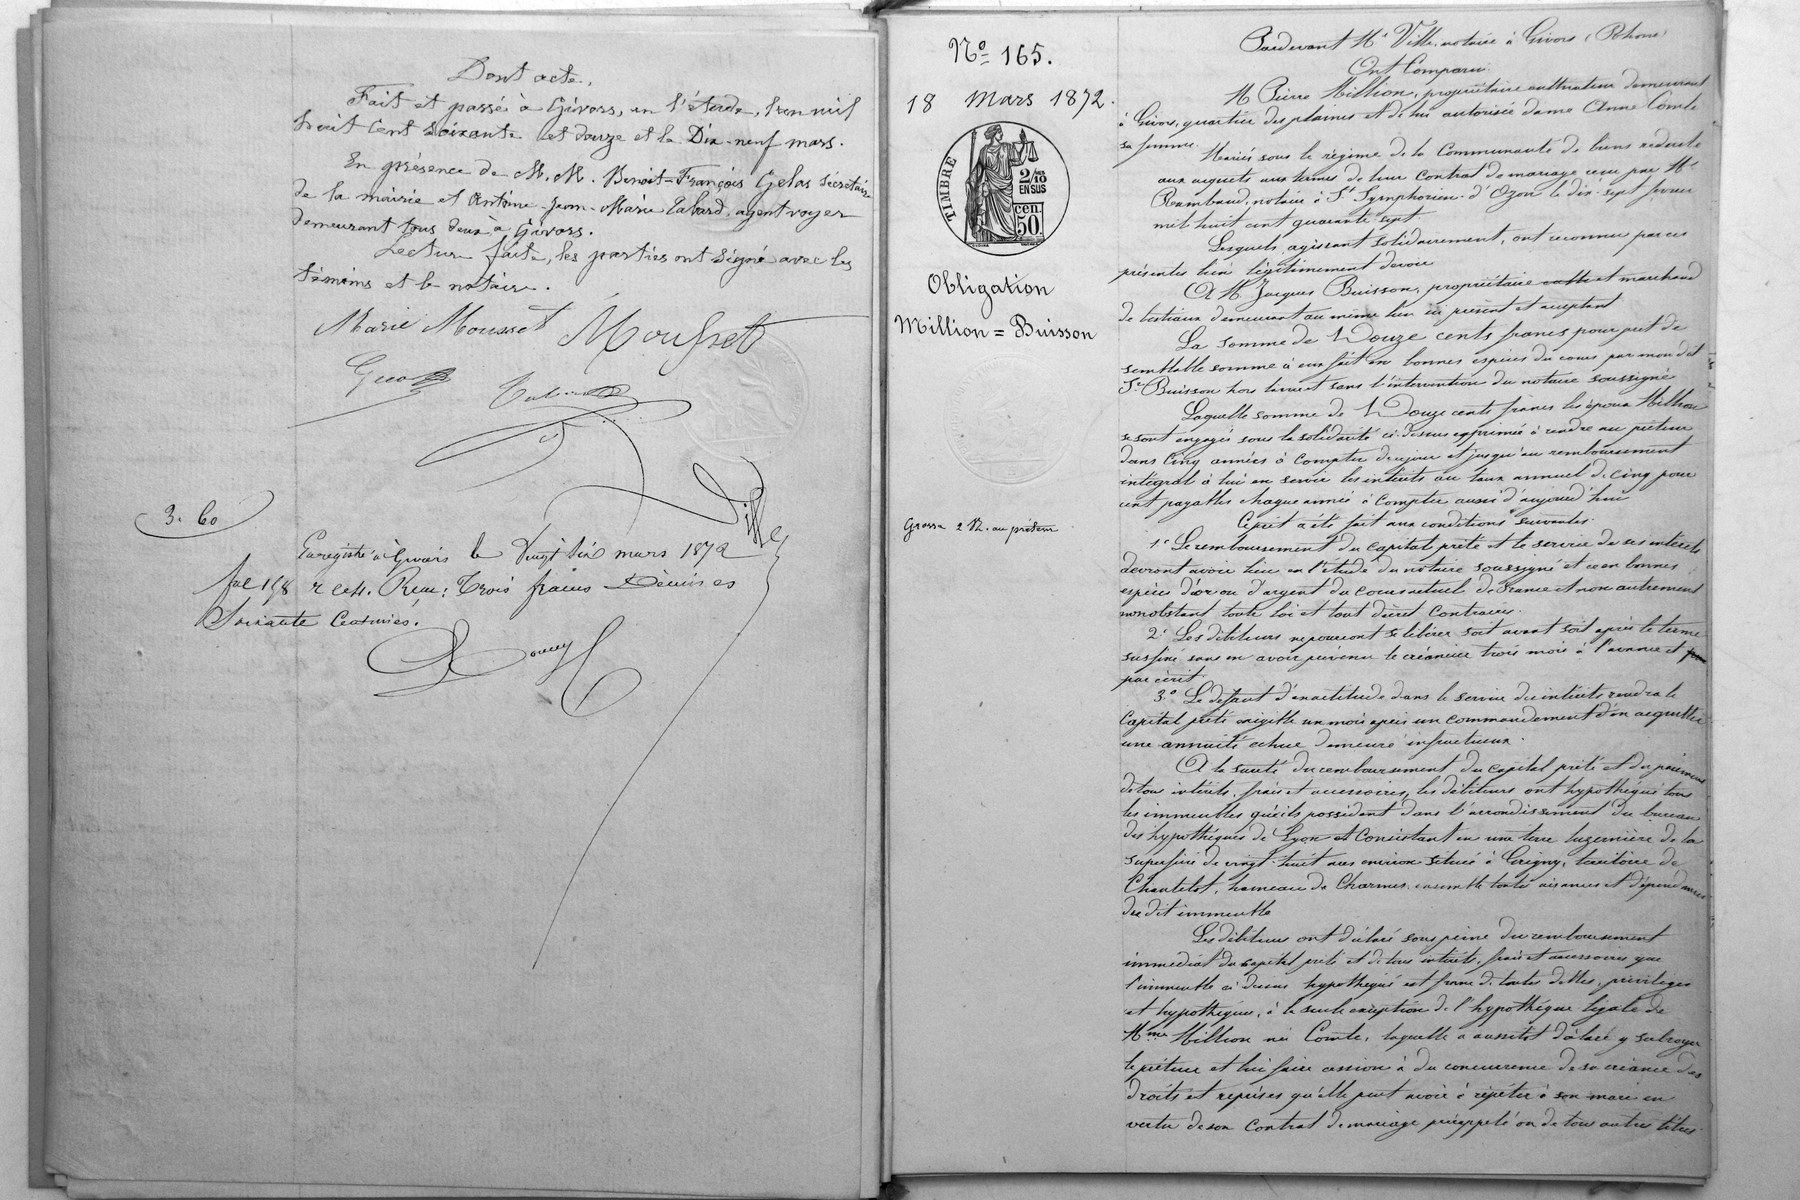 Dont acte.
Fait et passé à Givors, en l'étude, l'an mil
huit cent soixante et douze et le Dix-neuf mars.
En présence de M.M. Benoit-François Gelas secrétaire
de la mairie et Antoine-Jean-Marie Tabard, agent voyer
demeurant tous deux à Givors.
Lecture faite, les parties ont signé avec les
témoins et le notaire.
Marie Mousset Mousset
Ville
3.60
Enregistré à Givors le Vingt six mars 1872
fol 198 r c. Reçu: Trois francs Décimes
Soixante Centimes.
No 165.
18 Mars 1872.
TIMBRE
2/10
EN SUS
cen.
50
Obligation
Million = Buisson
Grosse 2 R. au prêteur
Pardevant Me Ville, notaire à Givors (Rhône)
Ont Comparu
M Pierre Million, propriétaire cultivateur demeurant
à Givors, quartier des plaines et de lui autorisée dame Anne Comte
sa femme
Mariés sous le régime de la Communauté de biens réduite
aux acquets aux termes de leur Contrat de mariage reçu par Me
Rambaud, notaire à St Symphorien-d'Ozon le dix-sept février
mil huit cent quarante sept
Lesquels, agissant solidairement, ont reconnu par ces
présentes bien légitimement devoir
A M. Jacques Buisson, propriétaire et marchand
de bestiaux demeurant au même lieu ici présent et acceptant
La somme de Douze cents francs pour prêt de
semblable somme à eux fait en bonnes espèces du cours par mon dit
Sr Buisson hors la vue et sans l'intervention du notaire soussigné
Laquelle somme de Douze cents francs les époux Million
se sont engagés sous la solidarité ci-dessus exprimée à rendre au prêteur
dans Cinq années à Compter de ce jour et jusqu'au remboursement
intégral à lui en servir les intérêts au taux annuel de Cinq pour
cent payables chaque année à Compter aussi d'aujourd'hui
Ce prêt a été fait aux conditions suivantes.
1o Le remboursement du capital prêté et le service de ses intérêts
devront avoir lieu en l'étude du notaire soussigné et ce en bonnes
espèces d'or ou d'argent du cours actuel de France et non autrement
nonobstant toute loi et tout décret contraires.
2o Les débiteurs ne pourront se libérer soit avant soit après le terme
susfixé sans en avoir prévenu le créancier trois mois à l'avance et
par écrit
3o Le défaut d'exactitude dans le service des intérêts rendra le
Capital prêté exigible un mois après un commandement d'en acquitter
une annuité échue demeuré infructueux.
A la sureté du remboursement du capital prêté et du paiement
de tous intérêts, frais et accessoires, les débiteurs ont hypothéqué tous
les immeubles qu'ils possèdent dans l'arrondissement du bureau
des hypothèques de Lyon et Consistant en une terre luzernière de la
superficie de vingt-huit ares environ située à Grigny, territoire de
Chantelot, hameau de Charmes ensemble toutes aisances et dépendances
du dit immeuble
Les débiteurs ont déclaré sous peine du remboursement
immédiat du capital prêté et de tous intérêts, frais et accessoires que
l'immeuble ci dessus hypothéqué est franc de toutes dettes, privilèges
et hypothèques, à la seule exception de l'hypothèque légale de
Mme Million née Comte, laquelle a aussitôt déclaré y subroger
le prêteur et lui faire cession à du concurrence de sa créance des
droits et reprises qu'elle peut avoir à répéter à son mari en
vertu de son Contrat de mariage préappelé ou de tous autres titres